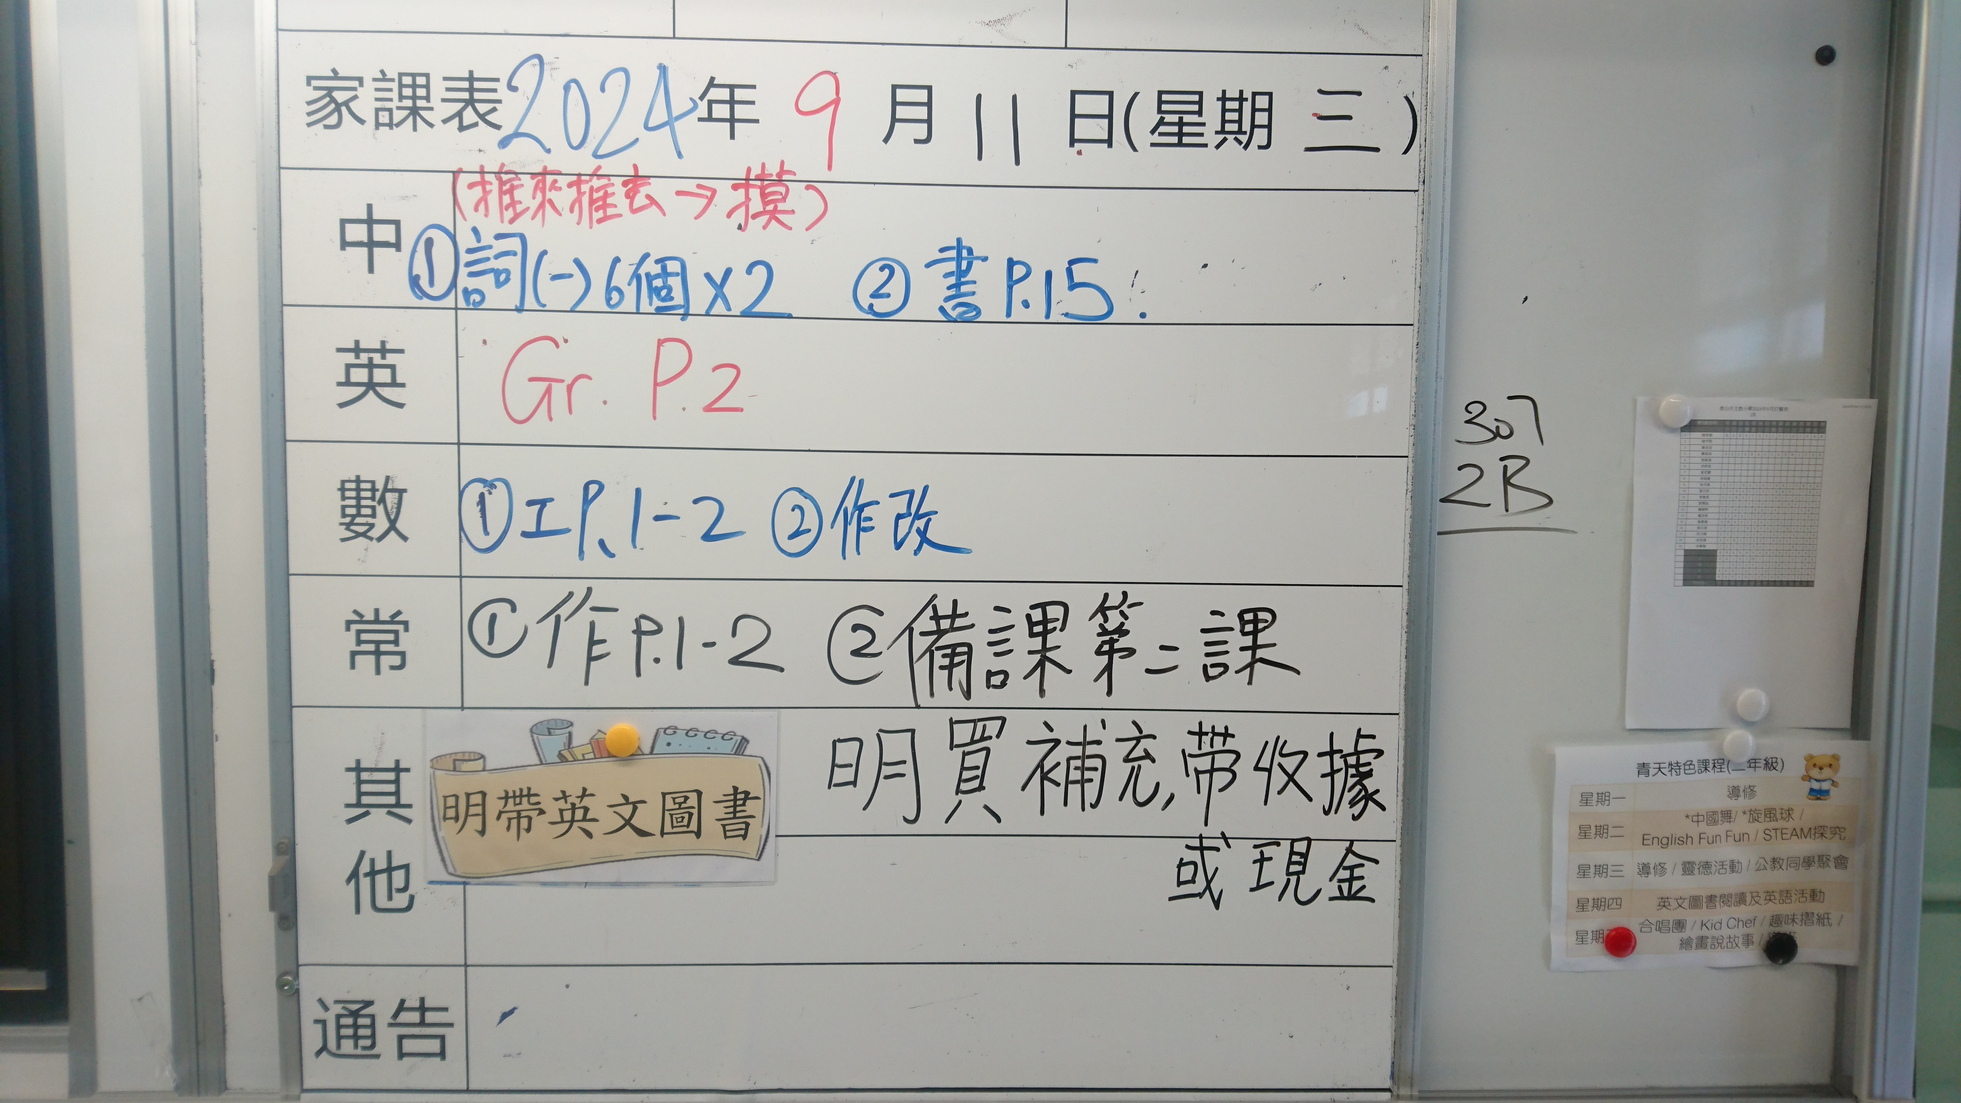 家課表2024年 9 月 11 日(星期 三 )
中
(推來推去→摸)
①詞(一)6個x2 ②書P.15.
英 Gr. P.2
數 ①工P.1-2 ②作改
常 ①作P.1-2 ②備課第二課
其他
明帶英文圖書
明買補充,带收據
或現金
通告
307
2B
青天特色課程(二年級)
星期一 導修
星期二 *中國舞/ *旋風球 /
English Fun Fun / STEAM探究
星期三 導修 / 靈德活動 / 公教同學聚會
星期四 英文圖書閱讀及英語活動
星期 合唱團 / Kid Chef / 趣味摺紙 /
繪畫說故事 /